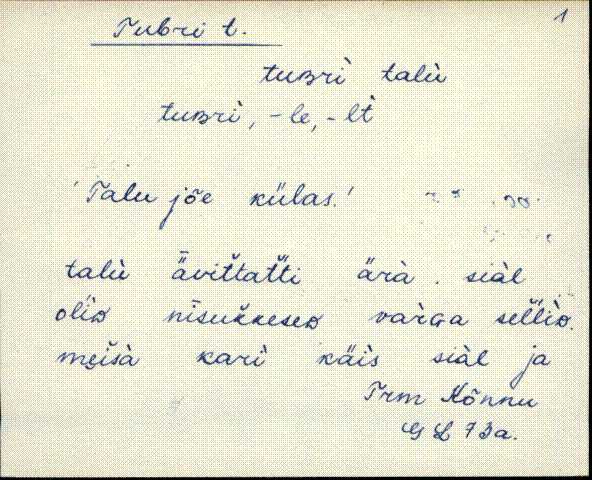 1
Tubri t.
tuʙrì talù
tuʙrì, -le, -lt
'Talu jõe külas.'
talù äviťtaťti ärà. siàl
oliᴅ nīsukkeseᴅ varɢa selliᴅ.
meisà karì käis siàl ja
Trm Kõnnu
GL 73a.